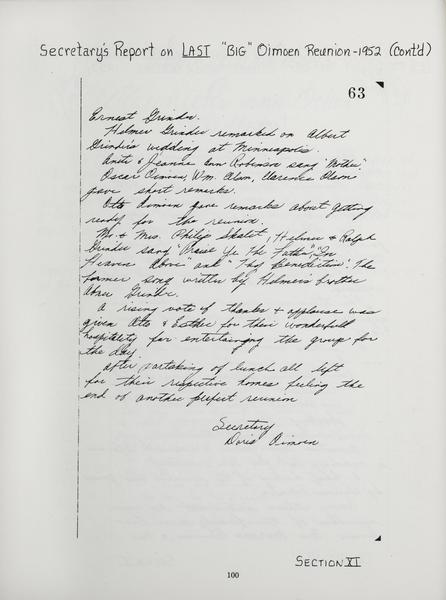 Secretary's Report on LAST "BIG" Oimoen Reunion-1952 (Cont'd)
63
Ernest Grinder.
Helmer Grinder remarked on Albert
Grinder's wedding at Minneapolis.
Anita & Jeanne Ann Robinson sang "Mother".
Oscar Oimoen, Wm. Olson, Clarence Olson
gave short remarks.
Otto Oimoen gave remarks about getting
ready for the reunion.
Mr. & Mrs. Philip Skalet, Helmer & Ralph
Grinder sang "Praise Ye The Father", "In
Heaven Above" and "Thy Benediction". The
former song written by Helmer's brother
Abner Grinder.
A rising vote of thanks & applause was
given Otto & Esther for their wonderfull
hospitality for entertaining the group for
the day.
After partaking of lunch all left
for their respective homes feeling the
end of another perfect reunion
Secretary
Doris Oimoen
100
SECTION XI